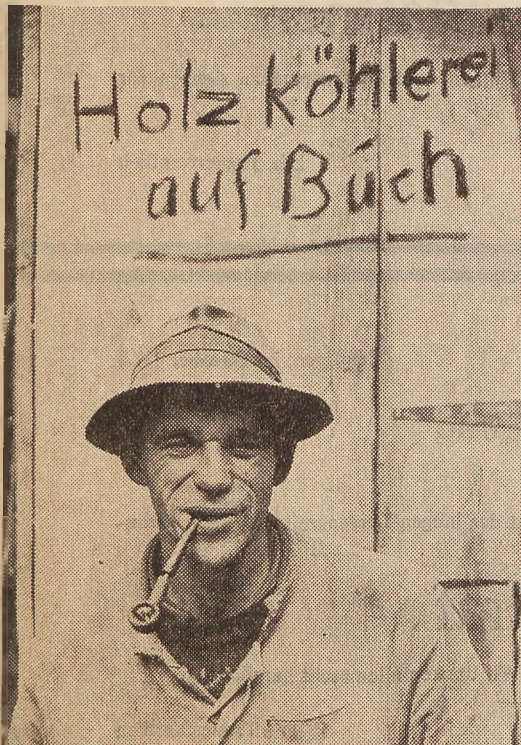 Holzköhlerei
auf Büch